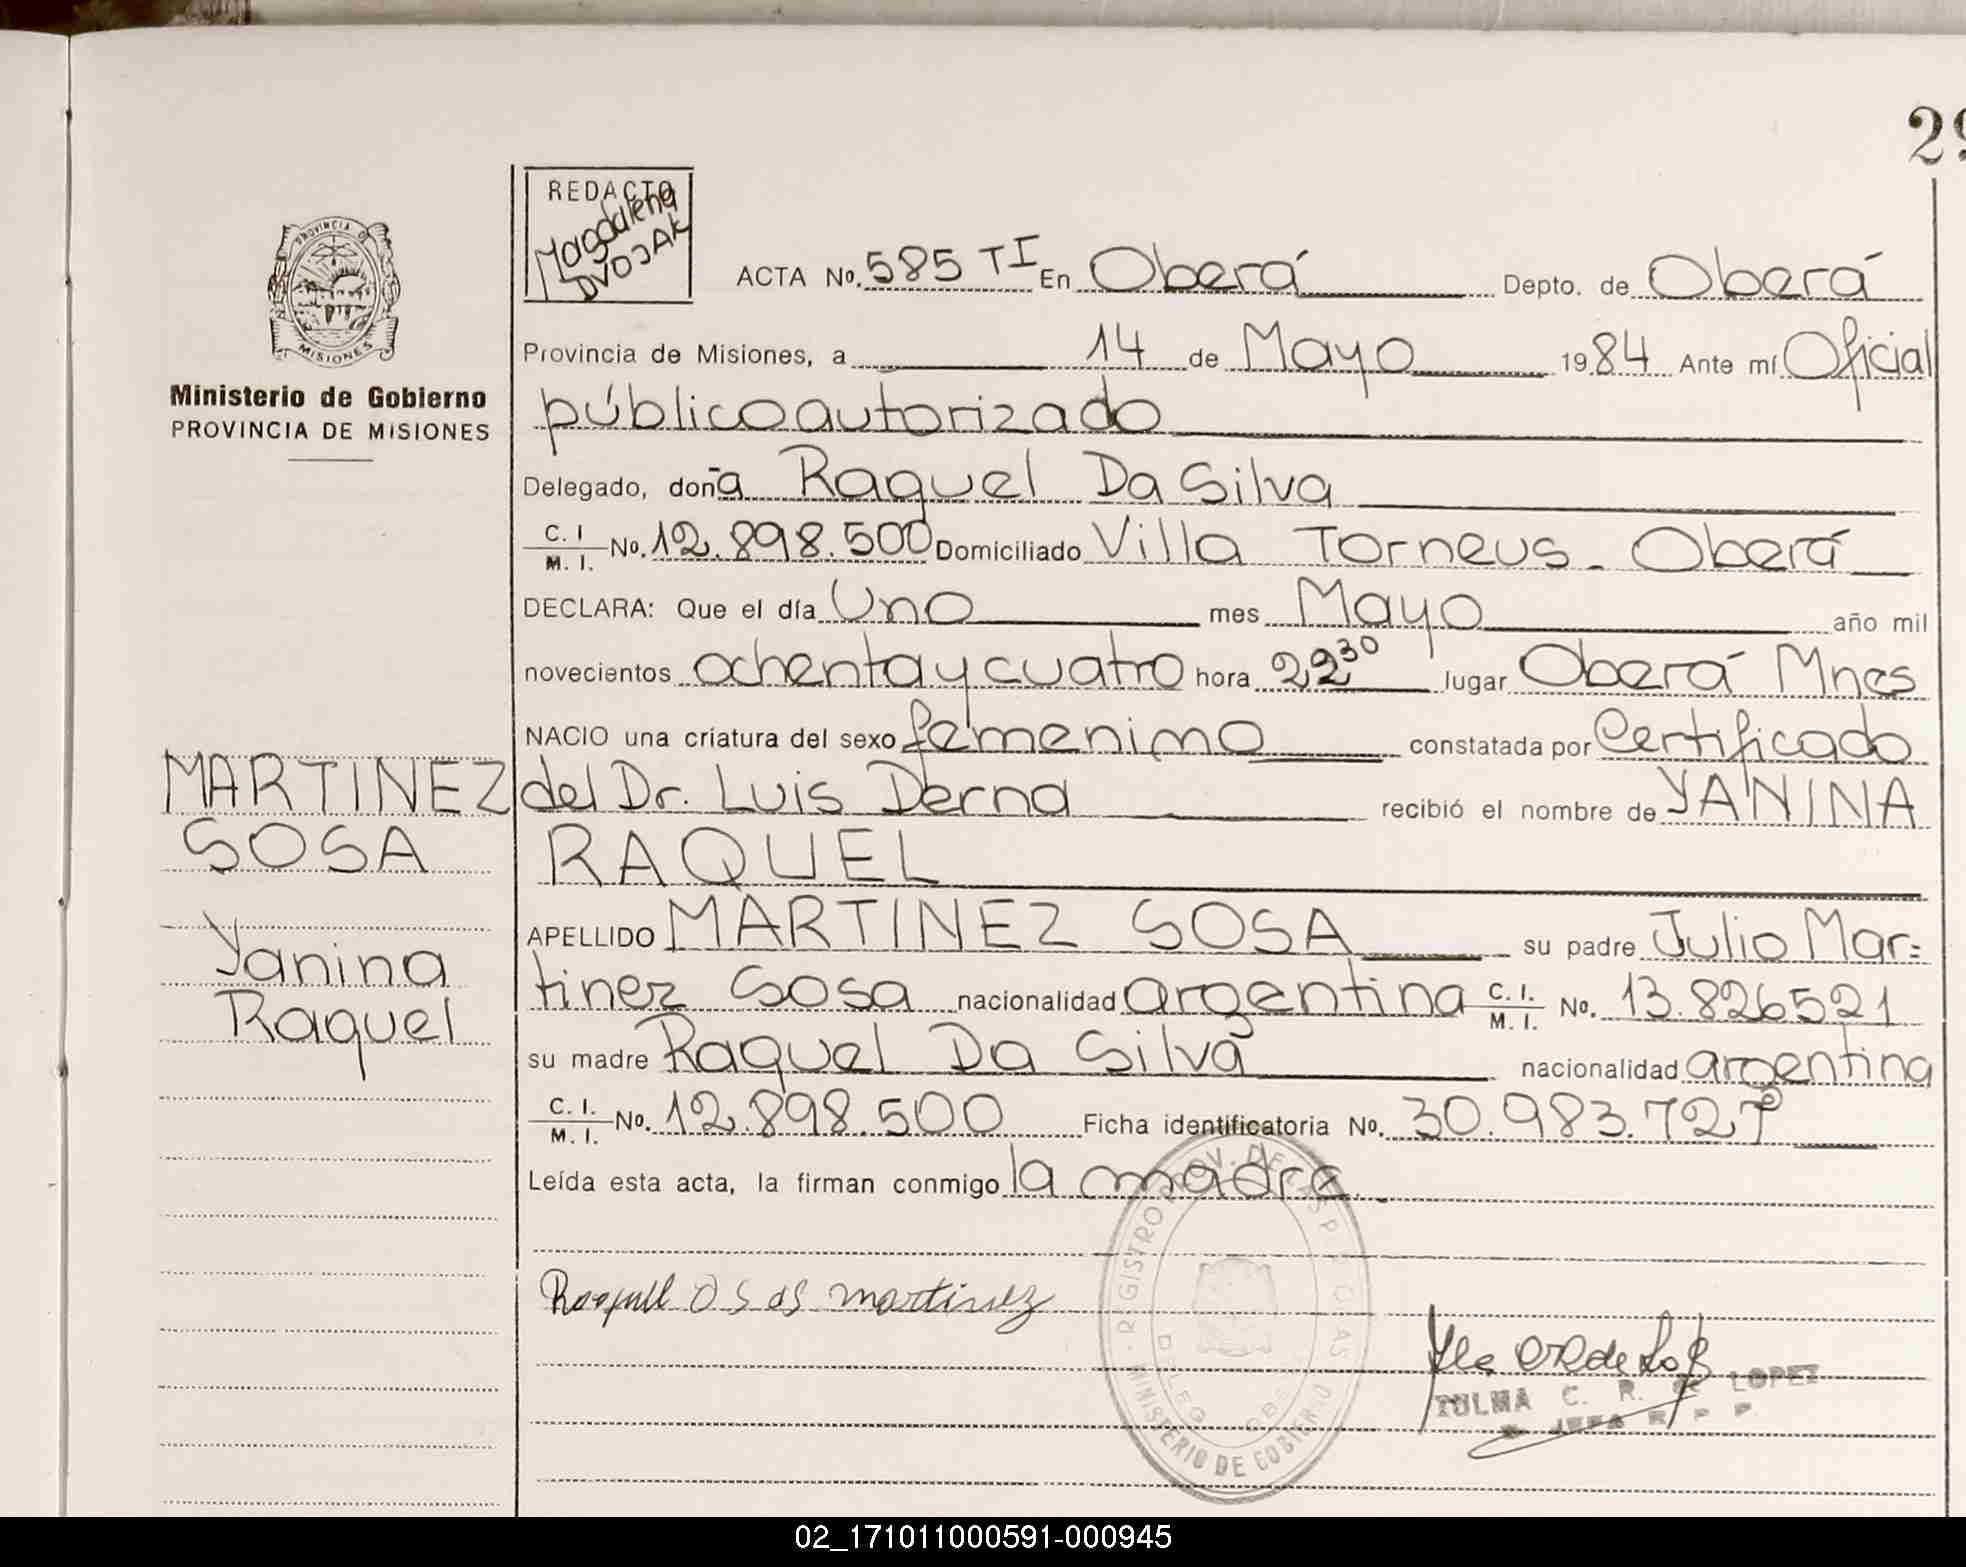 29
REDACTO
Magdalena
DVOJAK
PROVINCIA DE
MISIONES
Ministerio de Gobierno
PROVINCIA DE MISIONES
ACTA No. 585 TI En Oberá Depto. de Oberá
Provincia de Misiones, a 14 de Mayo 1984 Ante mí Oficial
público autorizado
Delegado, doña Raquel Da Silva
C. I. / M. I. No. 12.898.500 Domiciliado Villa Torneus - Oberá
DECLARA: Que el día Uno mes Mayo año mil
novecientos ochenta y cuatro hora 22 30 lugar Oberá Mnes
NACIO una criatura del sexo femenino constatada por Certificado
MARTINEZ del Dr. Luis Derna recibió el nombre de YANINA
SOSA RAQUEL
APELLIDO MARTINEZ SOSA su padre Julio Mar=
Yanina tinez Sosa nacionalidad argentina C. I. / M. I. No. 13.826521
Raquel su madre Raquel Da Silva nacionalidad argentina
C. I. / M. I. No. 12.898.500 Ficha identificatoria No. 30.983.727
Leída esta acta, la firman conmigo la madre.-
martinez
REGISTRO PROV. DE LAS PERSONAS
DELEG. OBERÁ
MINISTERIO DE GOBIERNO
C. R. de LOPEZ
JEFA R P P
02_171011000591-000945